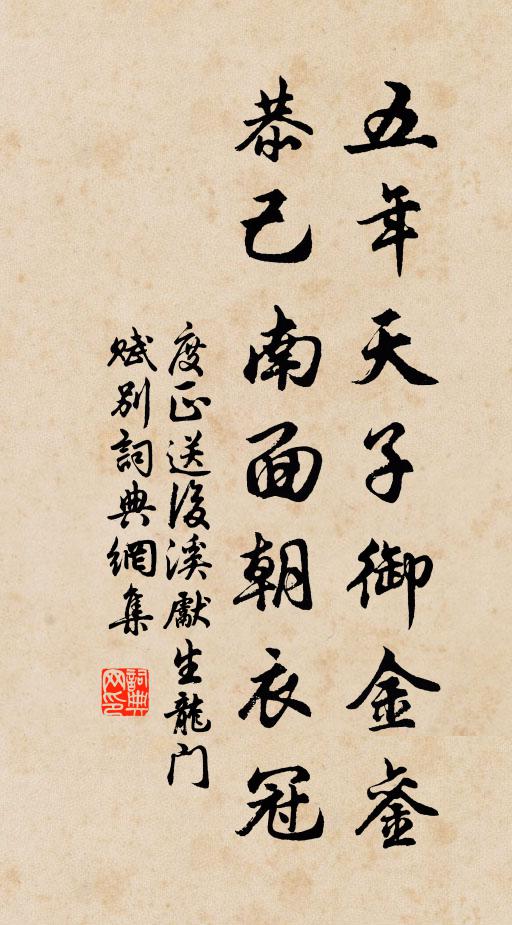 五年天子御金銮
恭己南面朝衣冠
度正送後溪獻生龍門
賦別詞典網集
詞典网印